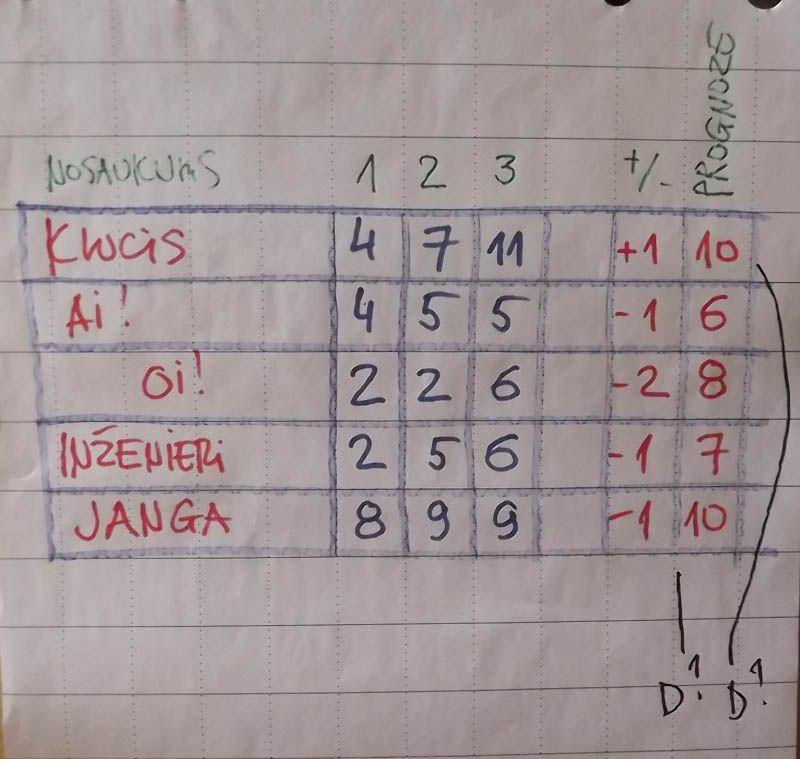 NOSAUKUMS 1 2 3 +/- PROGNOZE
KLUCIS 4 7 11 +1 10
Ai! 4 5 5 -1 6
Oi! 2 2 6 -2 8
INŽENIERi 2 5 6 -1 7
JANGA 8 9 9 -1 10
D! D!